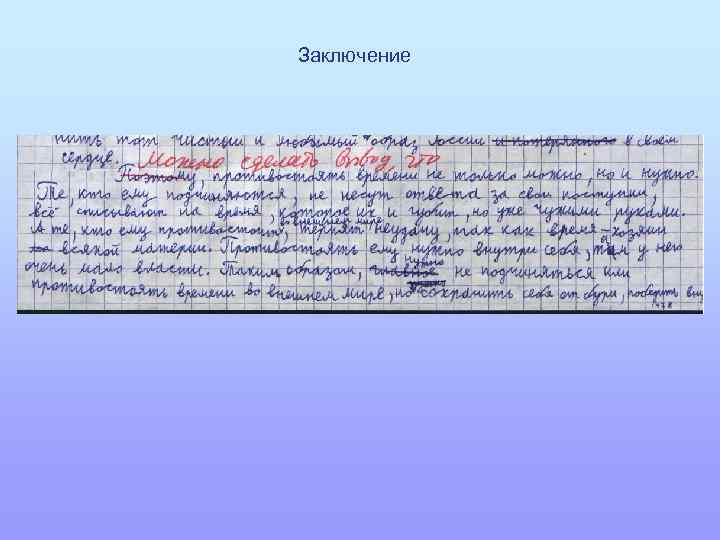 Заключение
нить тот чистый и любимый образ России в своём
сердце. Можно сделать вывод, что
Поэтому, противостоять времени не только можно, но и нужно.
Те, кто ему подчиняются, не несут ответа за свои поступки,
всё списывают на время, которое их и губит, но уже чужими руками.
во внешнем мире,
А те, кто ему противостоит, терпят неудачу, так как время – хозяин
всякой материи. Противостоять ему нужно внутри себя, там у него
нужно
очень мало власти. Таким образом, главное не подчиняться или
противостоять времени во внешнем мире, но сохранить себя от бури,
478